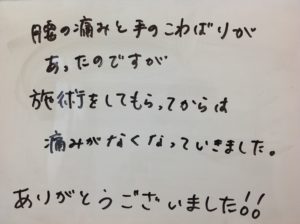 腰の痛みと手のこわばりが
あったのですが
施術をしてもらってからは
痛みがなくなっていきました。
ありがとうございました!!